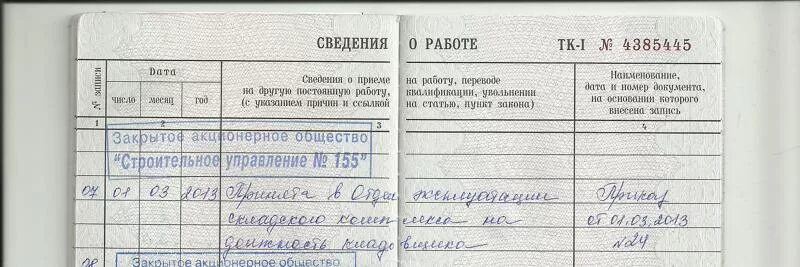 СВЕДЕНИЯ О РАБОТЕ ТК-I № 4385445
№ записи
Дата
число месяц год
Сведения о приеме на работу, переводе
на другую постоянную работу, квалификации, увольнении
(с указанием причин и ссылкой на статью, пункт закона)
Наименование,
дата и номер документа,
на основании которого
внесена запись
1 2 3 4
Закрытое акционерное общество
"Строительное управление № 155"
07 01 03 2013 Принята в Отдел эксплуатации Приказ
складского комплекса на от 01.03.2013
должность кладовщика №24
08 Закрытое акционерное общество